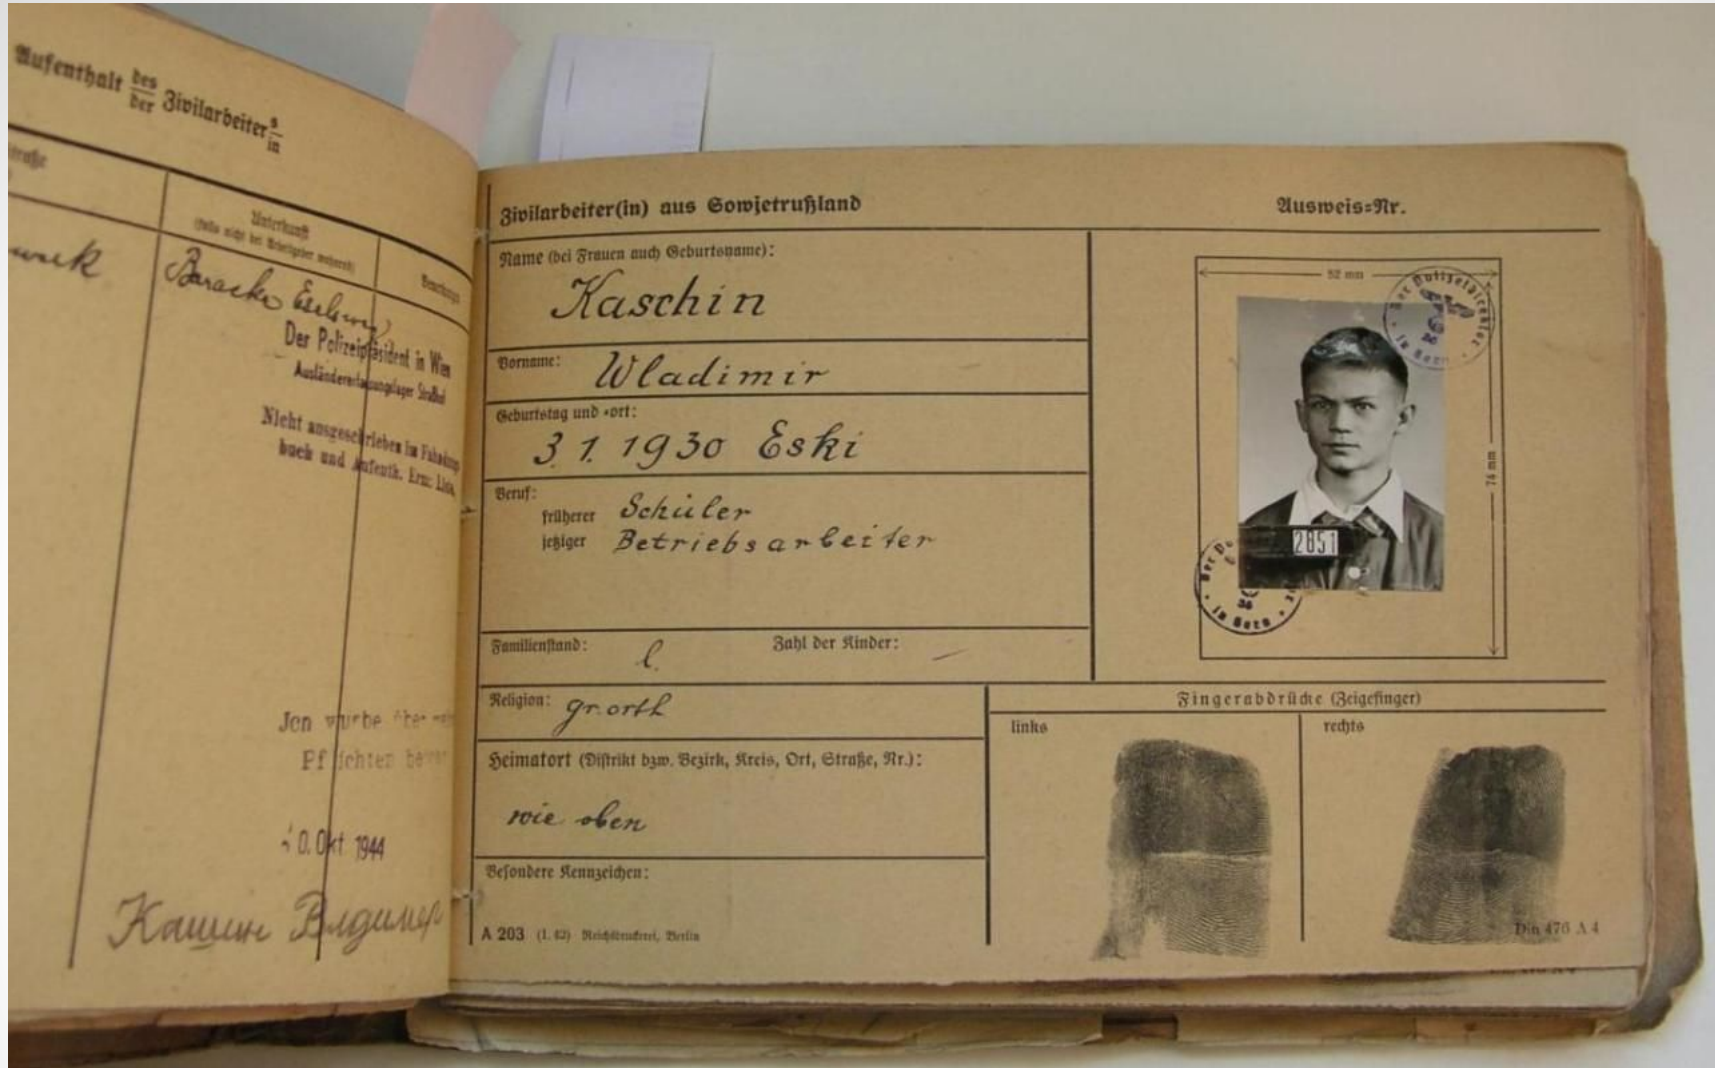 Aufenthalt des/der Zivilarbeiters/in
Unterkunft
(falls nicht bei Arbeitgeber wohnend)
Baracke
Der Polizeipräsident in Wien
Nicht ausgeschrieben im Fahndungs
buch und Aufenth. Erm. Liste.
wurde
Pflichten
0. Okt 1944
Кашин Владимер
Zivilarbeiter(in) aus Sowjetrußland
Ausweis=Nr.
Name (bei Frauen auch Geburtsname):
Kaschin
Vorname: Wladimir
Geburtstag und =ort:
3. 1. 1930 Eski
Beruf:
früherer Schüler
jetziger Betriebsarbeiter
Familienstand: l. Zahl der Kinder: —
Religion: gr. orth
Heimatort (Distrikt bzw. Bezirk, Kreis, Ort, Straße, Nr.):
wie oben
Besondere Kennzeichen:
A 203 (1. 42) Reichsdruckerei, Berlin
52 mm
Der Polizeidirektor
74 mm
2851
Fingerabdrücke (Zeigefinger)
links rechts
Din 476 A 4